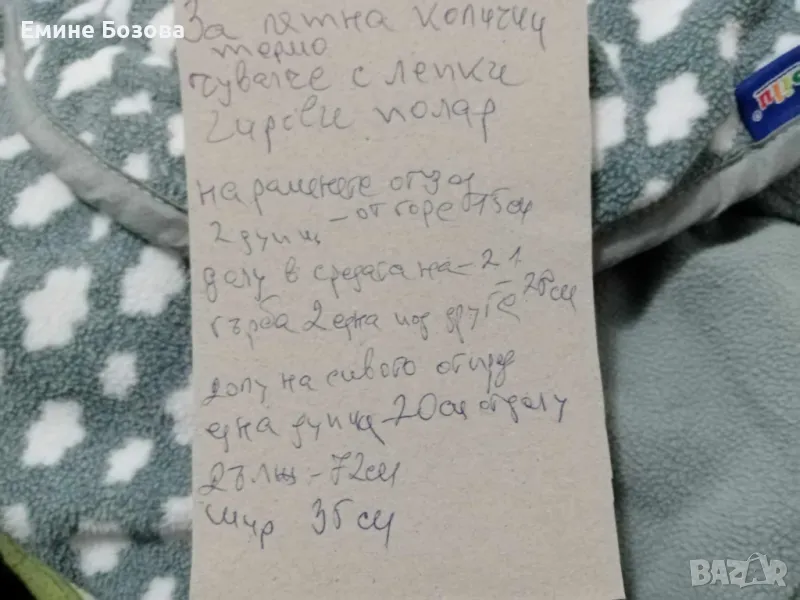 Емине Бозова
За лятна колички
термо
чувалче с лепки
2 циров полар
на раменете отзад
2 дупц - от горе 15 см
долу в средата на - 21
гърба 2 една под друга - 26 см
долу на сивото отпред
една дупц 20 см отдолу
Дълж - 72 см
Шир 36 см
BAZAR
bg